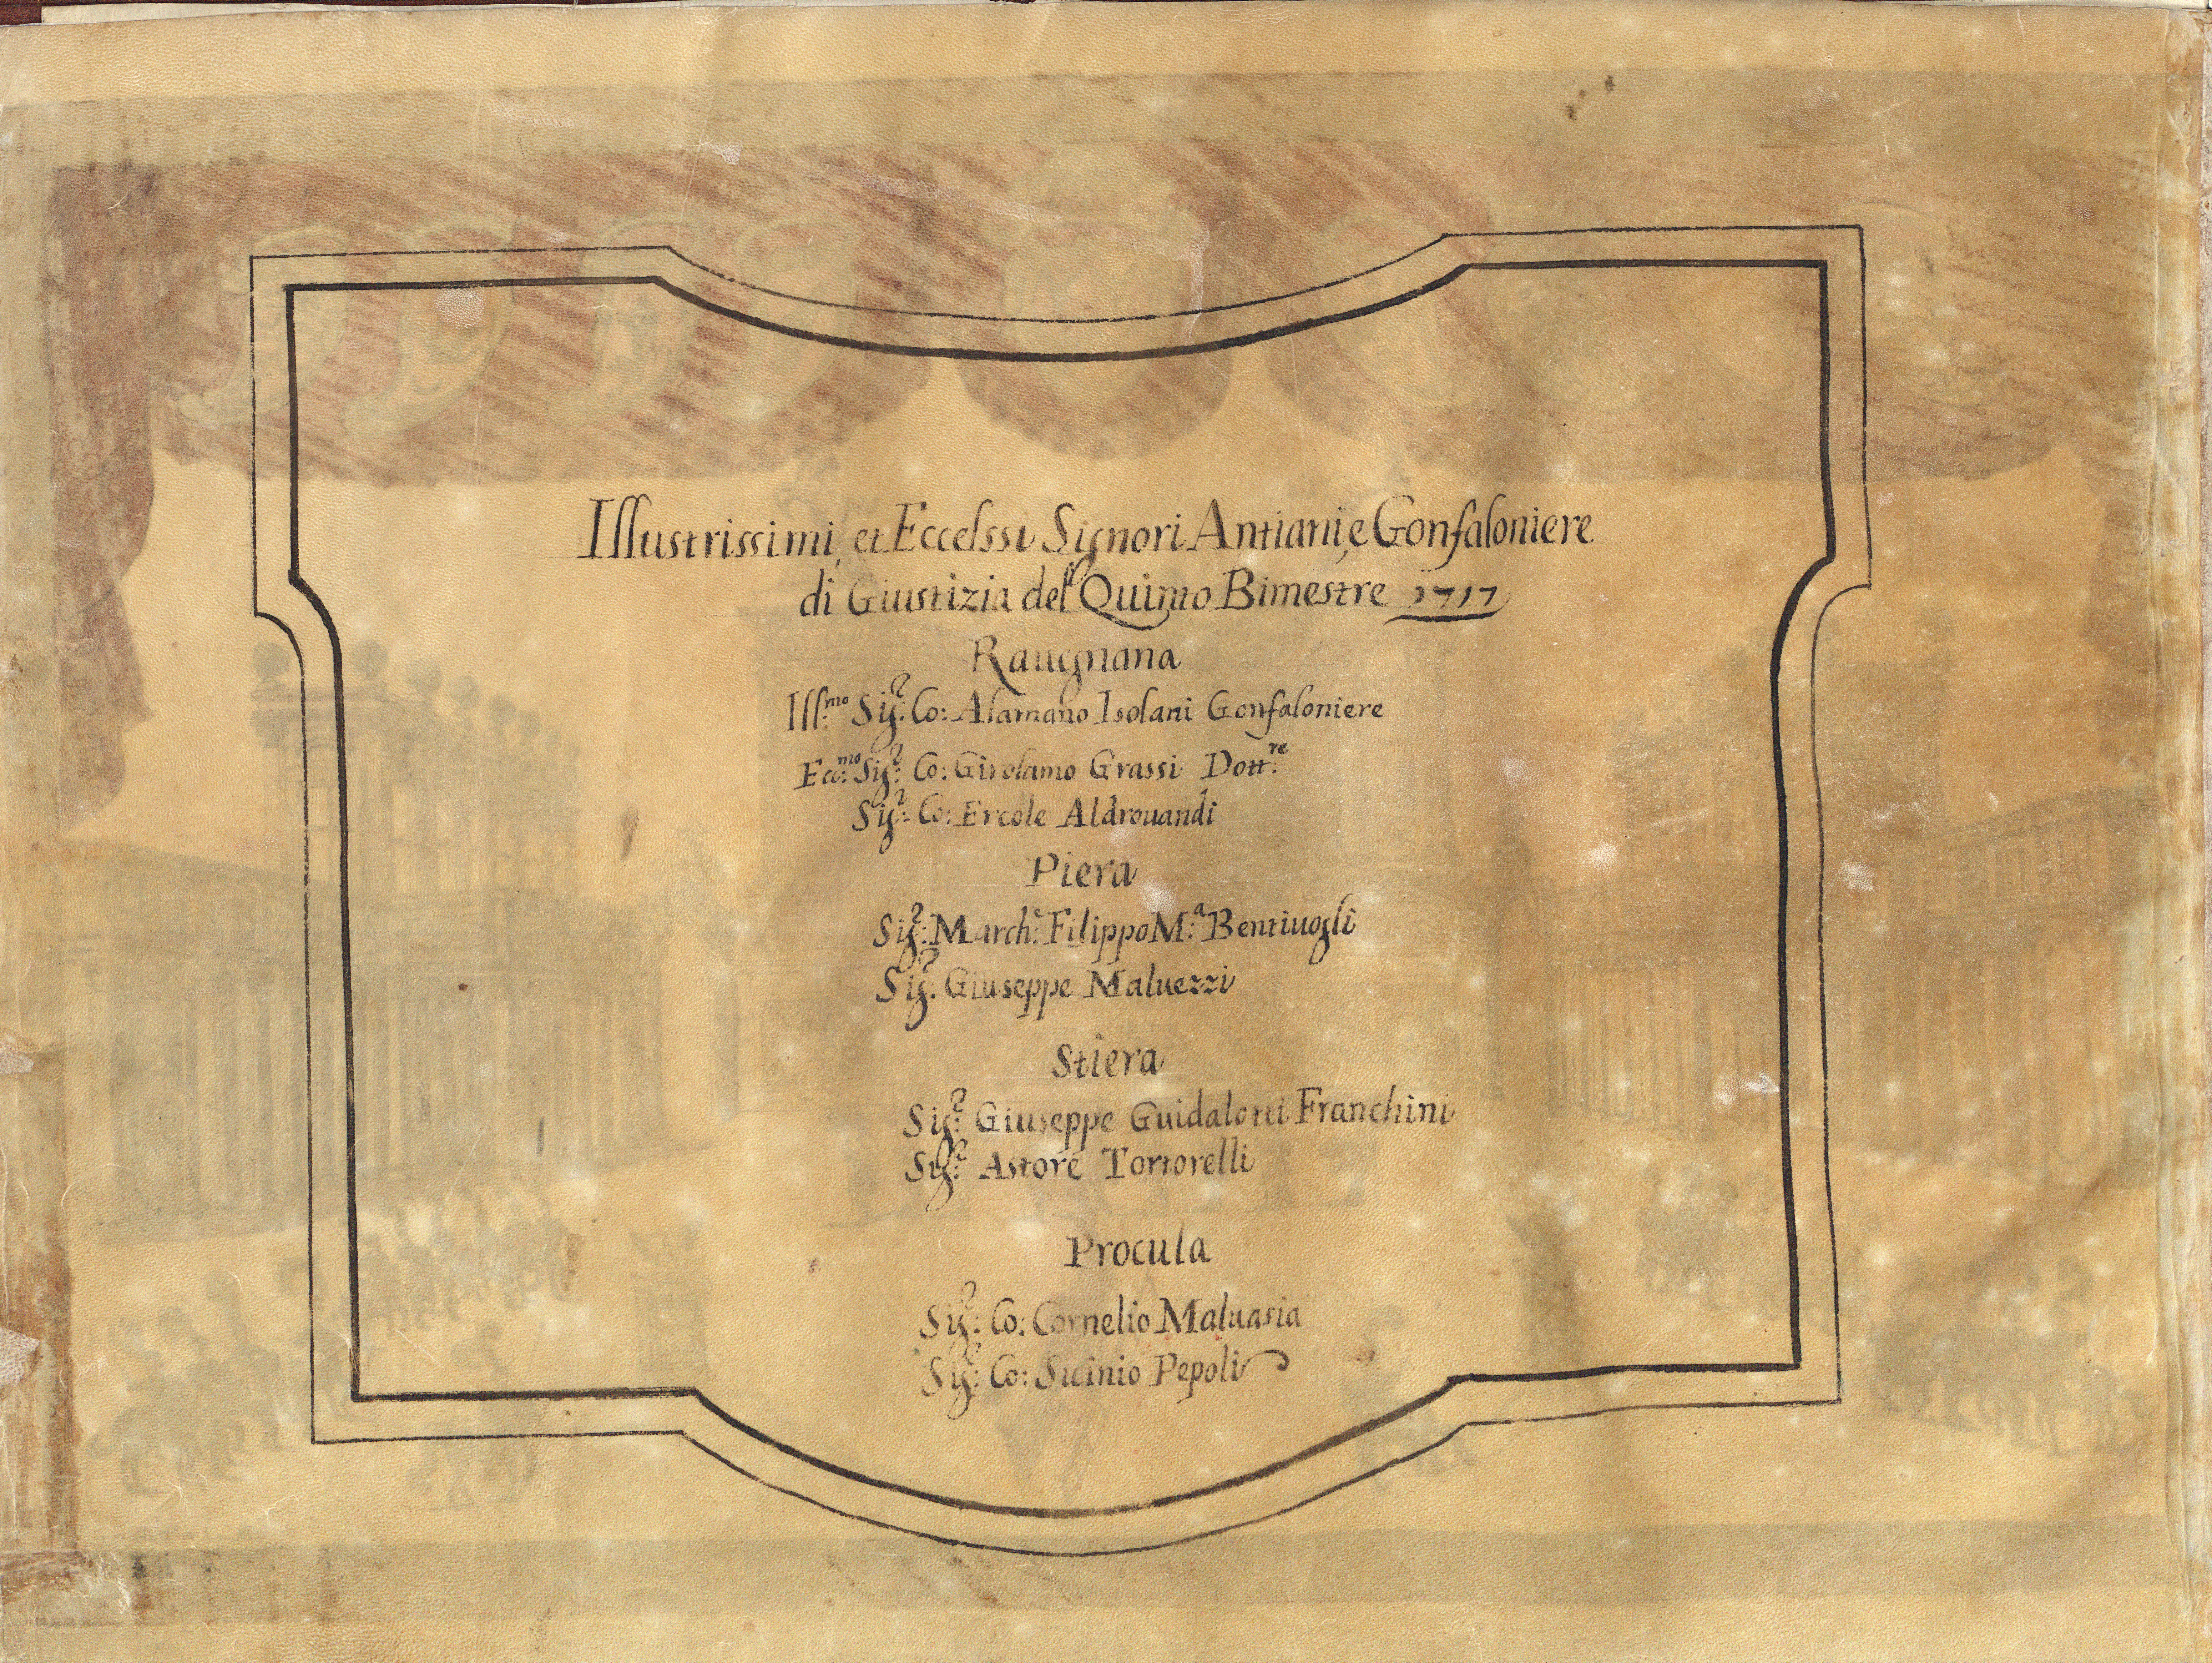 Illustrissimi, et Eccelssi Signori Antiani, e Gonfaloniere
di Giustizia del Quinto Bimestre 1717
Rauegnana
Ill:mo Sig:r Co: Alamano Isolani Gonfaloniere
Ecc:mo Sig:r Co: Girolamo Grassi Dott:re
Sig:r Co: Ercole Aldrouandi
Piera
Sig:r March:e Filippo M:a Bentiuogli
Sig.r Giuseppe Maluezzi
Stiera
Sig:r Giuseppe Guidalotti Franchini
Sig:r Astore Tortorelli
Procula
Sig:r Co: Cornelio Maluasia
Sig:r Co: Sicinio Pepoli